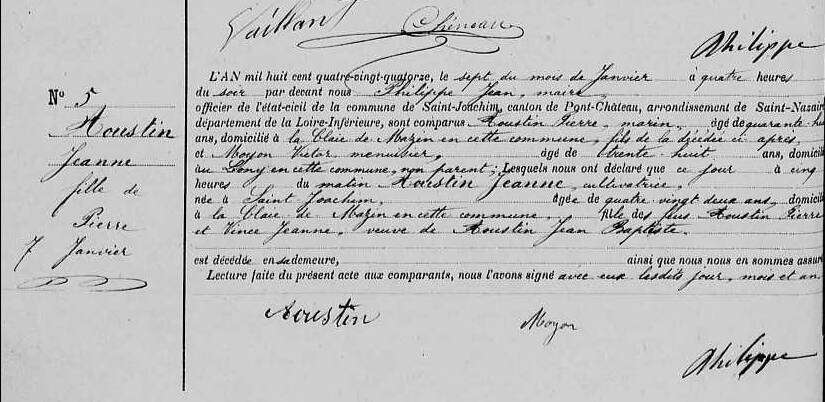 Vaillant Chéneau
Philippe
L'AN mil huit cent quatre-vingt-quatorze, le sept du mois de Janvier à quatre heures
du soir par devant nous Philippe Jean, maire
officier de l'état-civil de la commune de Saint-Joachim, canton de Pont-Château, arrondissement de Saint-Nazaire
département de la Loire-Inférieure, sont comparus Aoustin Pierre, marin, âgé de quarante huit
ans, domicilié à la Claie de Mazin en cette commune, fils de la décédée ci après,
et Moyon Victor menuisier, âgé de trente huit ans, domicilié
au Lony en cette commune, non parent; Lesquels nous ont déclaré que ce jour à cinq
heures du matin Aoustin Jeanne, cultivatrice,
née à Saint Joachim, âgée de quatre vingt deux ans, domicilié
à la Claie de Mazin en cette commune, fille des feus Aoustin Pierre
et Vince Jeanne, veuve de Aoustin Jean Baptiste.
est décédée en sa demeure, ainsi que nous nous en sommes assuré
Lecture faite du présent acte aux comparants, nous l'avons signé avec eux lesdits jour, mois et an.
Aoustin Moyon
Philippe
N° 5
Aoustin
Jeanne
fille de
Pierre
7 Janvier